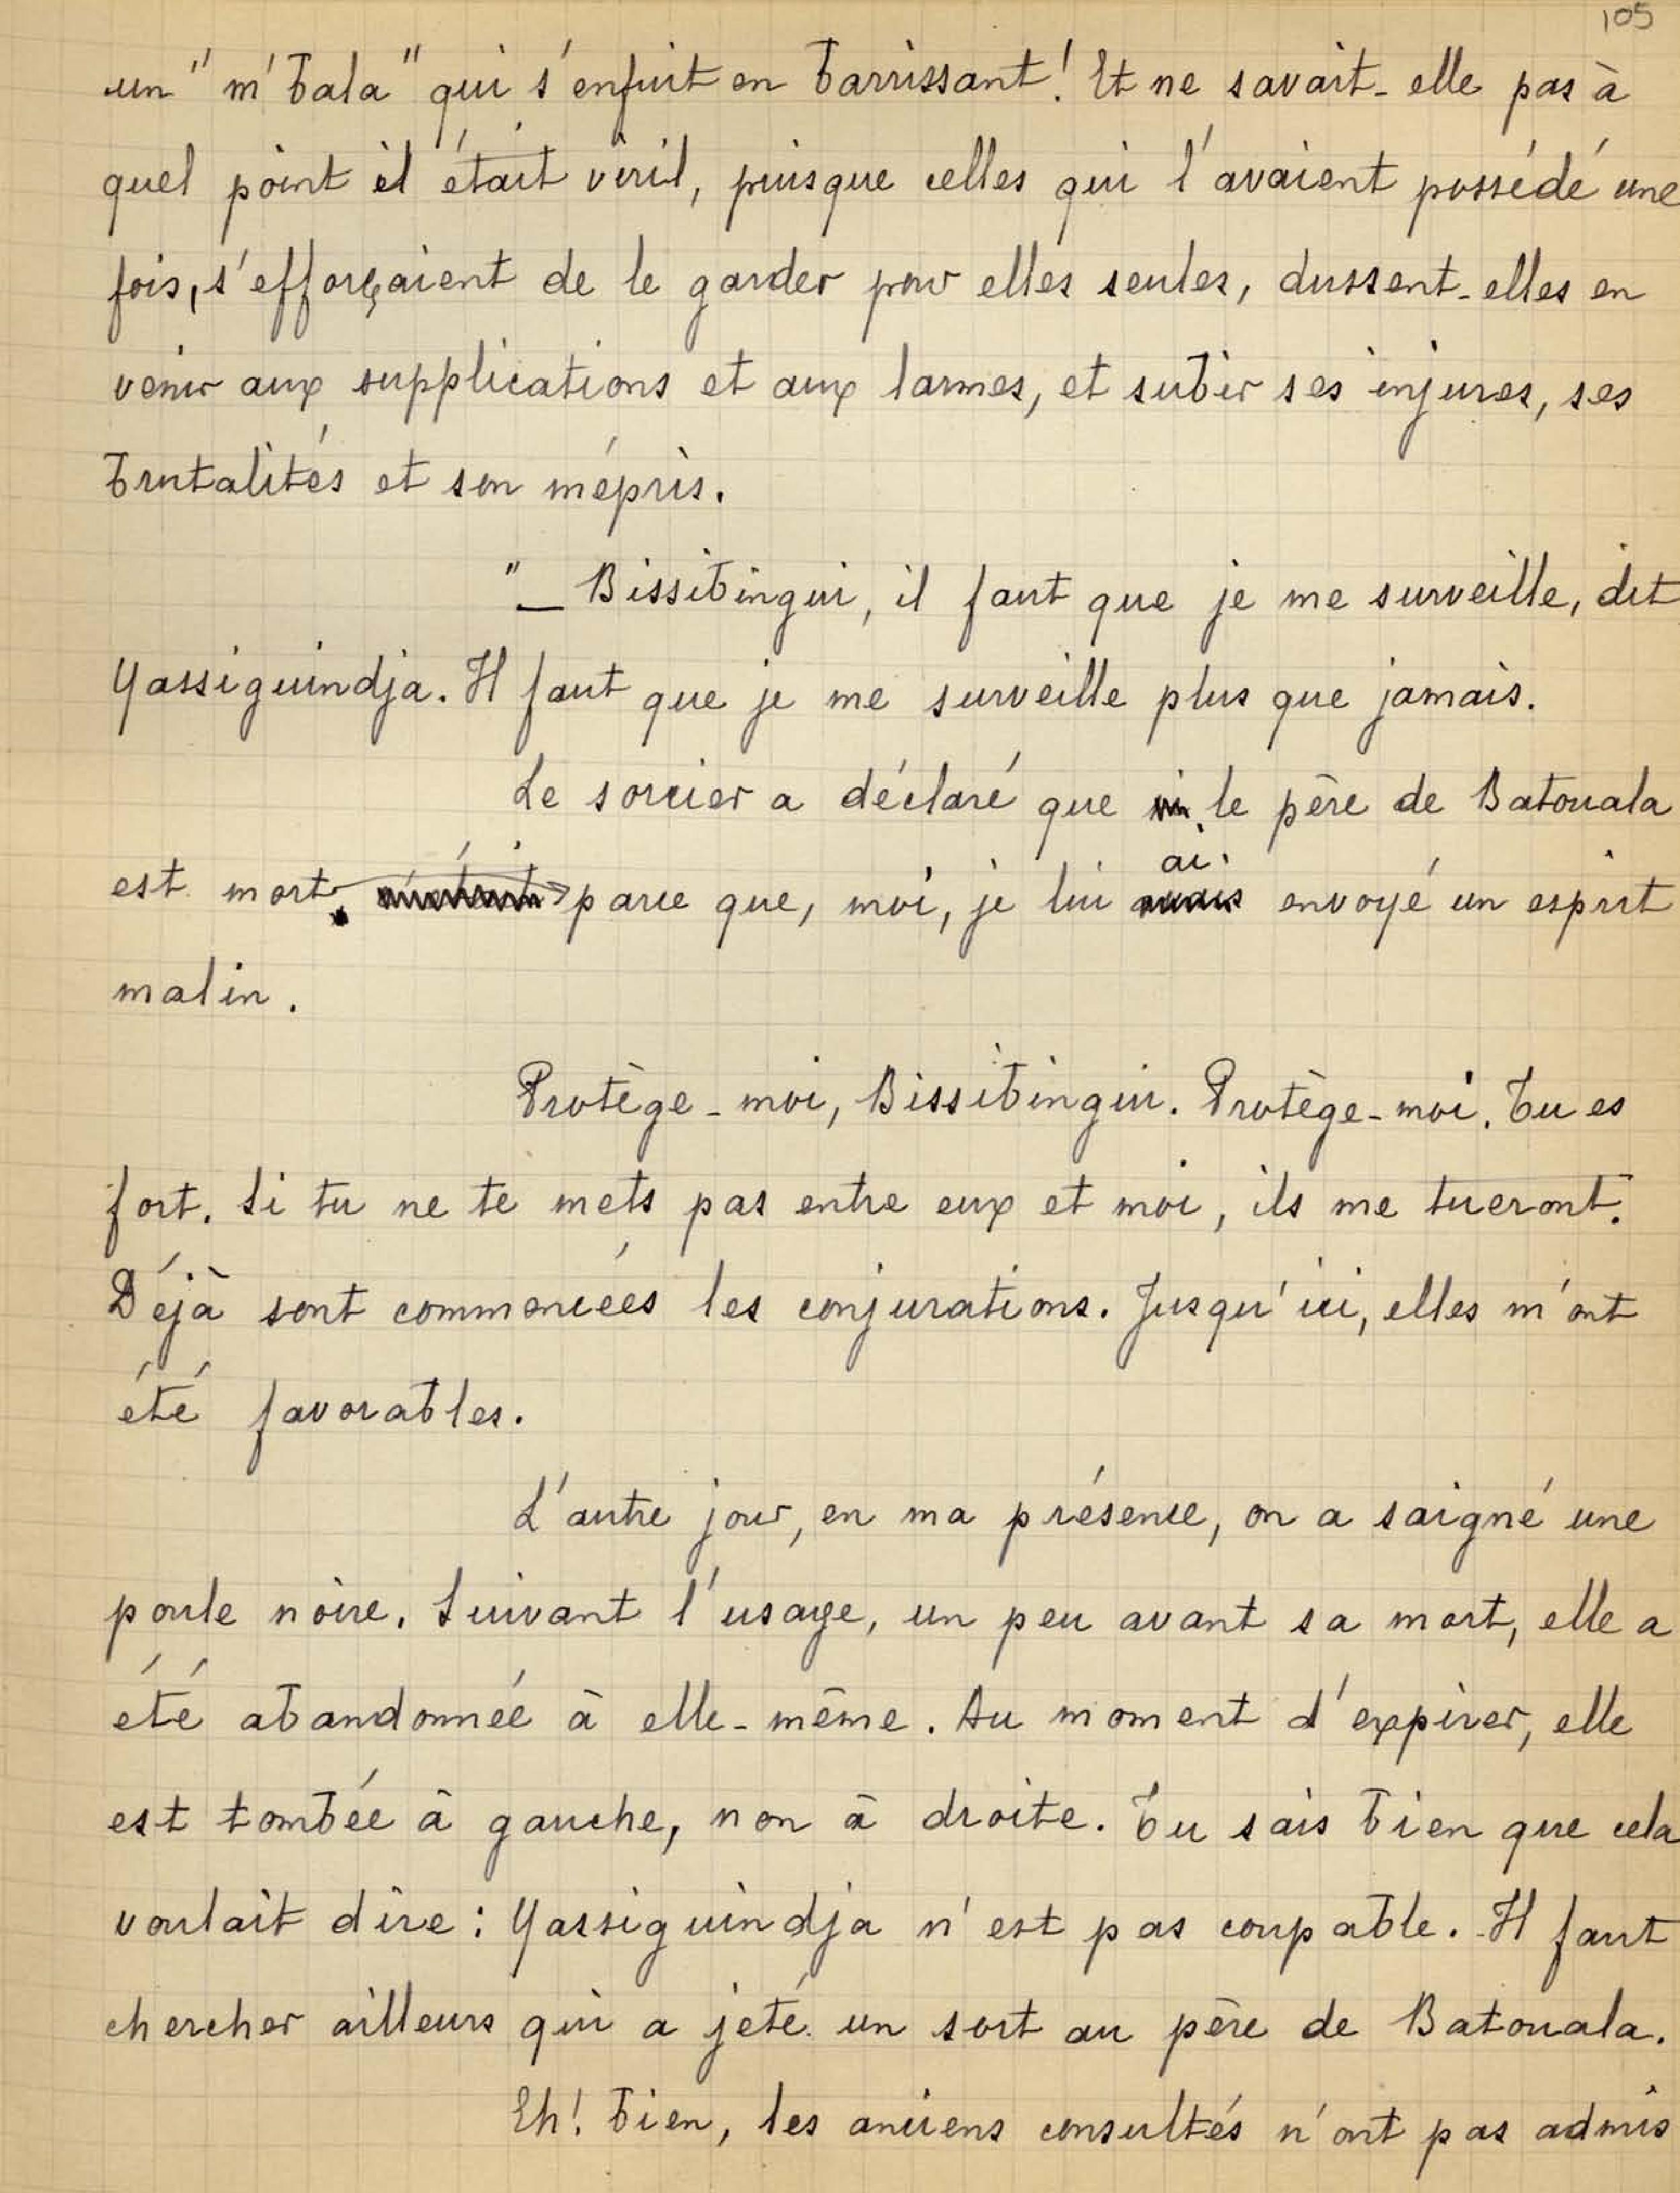 105
un "m'bala" qui s'enfuit en barrissant! Et ne savait-elle pas à
quel point il était viril, puisque celles qui l'avaient possédé une
fois, s'efforçaient de le garder pour elles seules, dussent-elles en
venir aux supplications et aux larmes, et subir ses injures, ses
brutalités et son mépris.
"— Bissibingui, il faut que je me surveille, dit
Yassiguindja. Il faut que je me surveille plus que jamais.
Le sorcier a déclaré que le père de Batouala
ai
est mort parce que, moi, je lui envoyé un esprit
malin.
Protège-moi, Bissibingui. Protège-moi. Tu es
fort. Si tu ne te mets pas entre eux et moi, ils me tueront.
Déjà sont commencées les conjurations. Jusqu'ici, elles m'ont
été favorables.
L'autre jour, en ma présence, on a saigné une
poule noire. Suivant l'usage, un peu avant sa mort, elle a
été abandonnée à elle-même. Au moment d'expirer, elle
est tombée à gauche, non à droite. Tu sais bien que cela
voulait dire : Yassiguindja n'est pas coupable. Il faut
chercher ailleurs qui a jeté un sort au père de Batouala.
Eh! bien, les anciens consultés n'ont pas admis